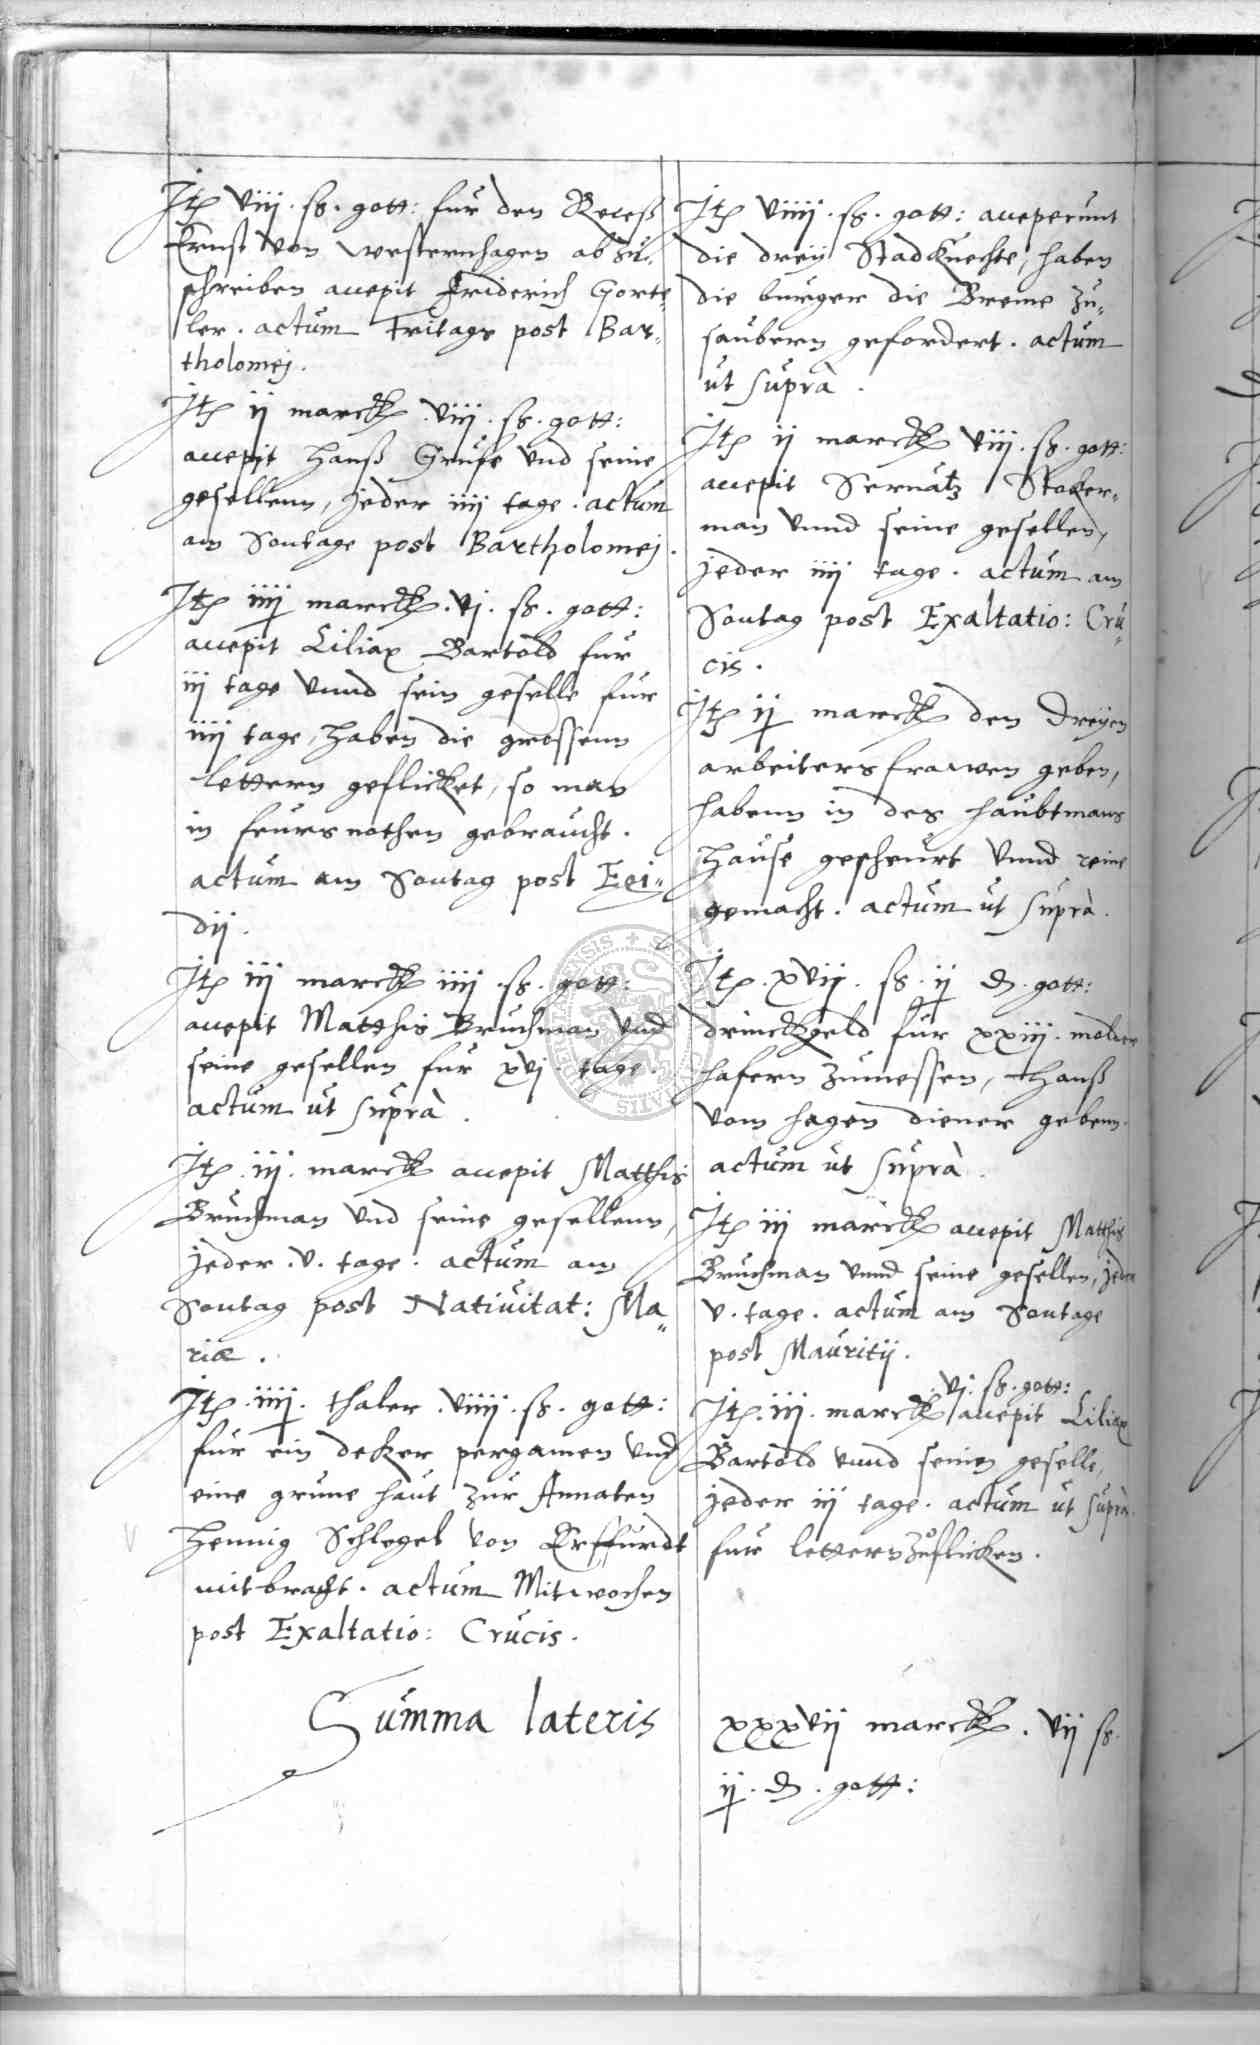 Jtē viij . ß . gott: fur den Receß
Ernst von westernhagen ab zu„
schreiben accepit Friderich Gorte„
ler . actum Fritags post Bar„
tholomej .
Jtē ij marck viij . ß . gott:
accepit Hanß Grufe vnd seine
gesellenn, Jeder iiij tage . actum
am Sontage post Bartholomej .
Jtē iiij marck . vj . ß . gott:
accepit Liliax Bartold fur
iij tage vnnd sein geselle fur
iiij tage, haben die grossenn
lettern geflicket, so man
in feursnothen gebraucht .
actum am Sontag post Egi„
dij .
Jtē iij marck iiij . ß . gott:
accepit Matthis Bruchman vnd
seine gesellen fur xvj . tage .
actum ut suprà .
Jtē . iij . marck accepit Matthis
Bruchman vnd seine gesellenn,
jeder . v . tage . actum am
Sontag post Natiuitat: Ma„
riæ .
Jtē . iiij . thaler . viiij . ß . gott:
fur ein deker pergamen vnd
eine grune haut zur Annaten
Hennig Schlegel von Erffurdt
mitbracht . actum Mitwochen
post Exaltatio: Crucis .
Summa lateris
Jtē viiij . ß . gott: acceperunt
die dreij Stadknechte, haben
die burger die Breme zu„
saubern gefordert . actum
ut suprà .
Jtē ij marck viij . ß . gott:
accepit Seruatz Stoker„
man vnnd seine gesellen,
jeder iiij tage . actum am
Sontag post Exaltatio: Cru„
cis .
Jtē ij marck den dreyen
arbeitersfrawen geben,
habenn in des haubtmans
Hause gescheurt vnnd reine
gemacht . actum ut suprà .
Jtē . xvij . ß . ij d . gott:
drinckgeld fur xxiij . molder
hafern zumessen, Hanß
vom hagen diener gebenn .
actum ut suprà .
Jtē iij marck accepit Matthis
Bruchman vnnd seine gesellen, jeder
v . tage . actum am Sontage
post Mauritij .
. vj . ß . gott:
Jtē . iij . marck accepit Liliax
Bartold vnnd seinen geselle,
jeder iij tage . actum ut suprà .
fur lettern zuflicken .
xxxvij marck . vij ß .
ij . d . gott: